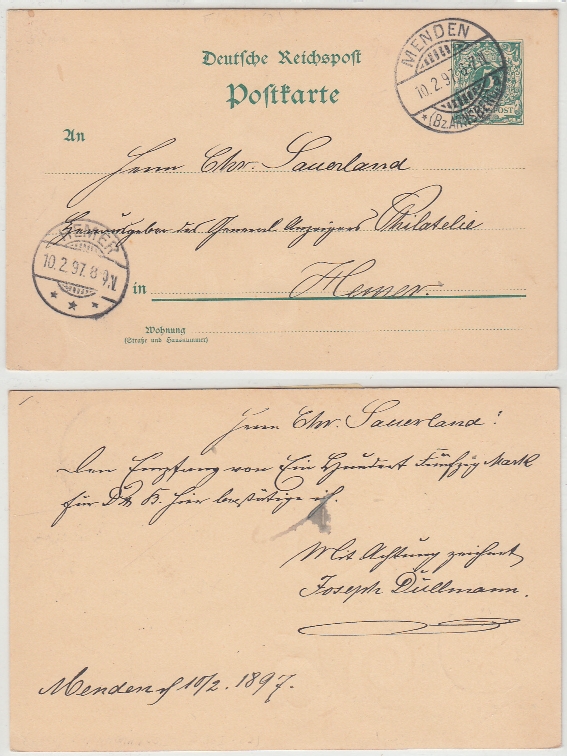 Deutsche Reichspost
Postkarte
MENDEN
10.2.97.
*(BZ.ARNSBERG)
POST
An
Herrn Chr. Sauerland
Herausgeber des General Anzeigers Philatelie
HEMER
10.2.97.8-9.V.
in
Hemer.
Wohnung
(Straße und Hausnummer)
Herrn Chr. Sauerland!
Den Empfang von Ein Hundert Fünfzig Mark
für hier bestätige ich.
Mit Achtung zeichnet
Joseph Düllmann.
Menden 10/2. 1897.